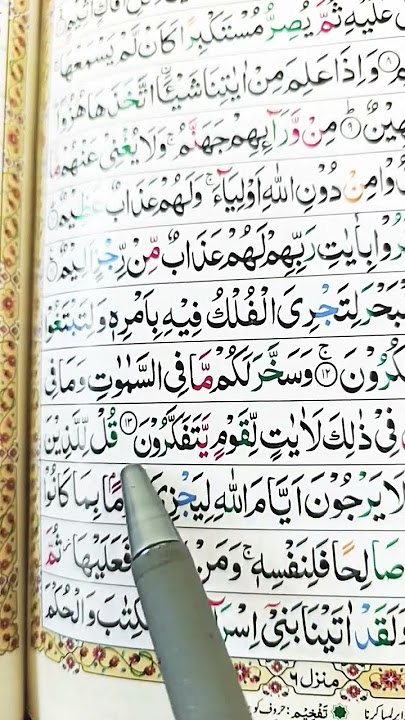 عَلَيْهِ ثُمَّ يُصِرُّ مُسْتَكْبِرًا كَاَنْ لَّمْ يَسْمَعْهَا
۸ وَاِذَا عَلِمَ مِنْ اٰيٰتِنَا شَيْـًٔا اتَّخَذَهَا هُزُوًا
هِيْنٌ ۹ مِنْ وَّرَآئِهِمْ جَهَنَّمُ ۚ وَلَا يُغْنِيْ عَنْهُمْ مَّا
ذُوْا مِنْ دُوْنِ اللّٰهِ اَوْلِيَآءَ ۚ وَلَهُمْ عَذَابٌ عَظِيْمٌ
رُوْا بِاٰيٰتِ رَبِّهِمْ لَهُمْ عَذَابٌ مِّنْ رِّجْزٍ اَلِيْمٌ
بَحْرَ لِتَجْرِيَ الْفُلْكُ فِيْهِ بِاَمْرِهٖ وَلِتَبْتَغُوْا
كُرُوْنَ ۚ ۱۲ وَسَخَّرَ لَكُمْ مَّا فِي السَّمٰوٰتِ وَمَا فِي
فِيْ ذٰلِكَ لَاٰيٰتٍ لِّقَوْمٍ يَّتَفَكَّرُوْنَ ۱۳ قُلْ لِّلَّذِيْنَ
لَا يَرْجُوْنَ اَيَّامَ اللّٰهِ لِيَجْزِيَ مًۢا بِمَا كَانُوْا
صَالِحًا فَلِنَفْسِهٖ ۚ وَمَنْ فَعَلَيْهَا ۫ ثُمَّ
وَلَقَدْ اٰتَيْنَا بَنِيْٓ اِسْرَ كِتٰبَ وَالْحُكْمَ
منزل ۶
تَفْخِيْم : حروف کو